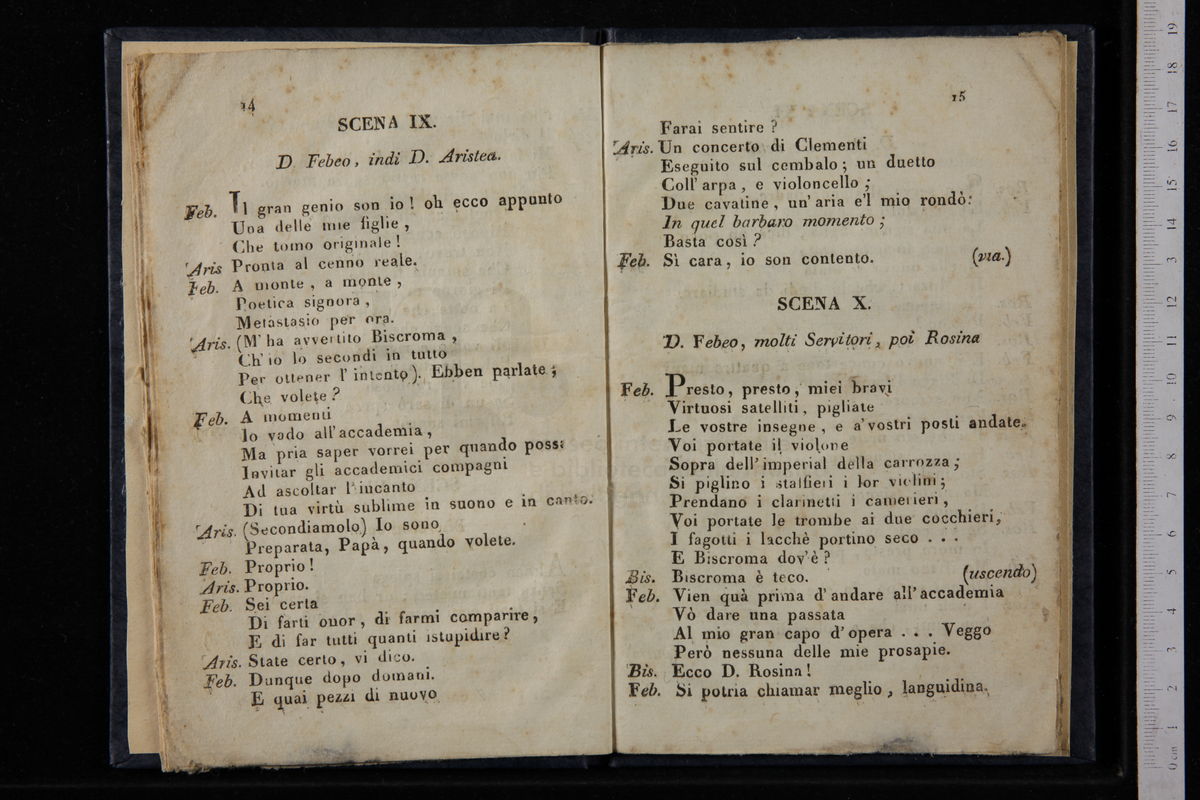 14
SCENA IX.
D. Febeo, indi D. Aristea.
Feb. Il gran genio son io! oh ecco appunto
Una delle mie figlie,
Che tomo originale!
Aris. Pronta al cenno reale.
Feb. A monte, a monte,
Poetica signora,
Metastasio per ora.
Aris. (M'ha avvertito Biscroma,
Ch'io lo secondi in tutto
Per ottener l'intento). Ebben parlate;
Che volete?
Feb. A momenti
Io vado all'accademia,
Ma pria saper vorrei per quando possi
Invitar gli accademici compagni
Ad ascoltar l'incanto
Di tua virtù sublime in suono e in canto.
Aris. (Secondiamolo) Io sono
Preparata, Papà, quando volete.
Feb. Proprio!
Aris. Proprio.
Feb. Sei certa
Di farti onor, di farmi comparire,
E di far tutti quanti istupidire?
Aris. State certo, vi dico.
Feb. Dunque dopo domani.
E quai pezzi di nuovo
15
Farai sentire?
Aris. Un concerto di Clementi
Eseguito sul cembalo; un duetto
Coll'arpa, e violoncello;
Due cavatine, un'aria e'l mio rondò:
In quel barbaro momento;
Basta così?
Feb. Sì cara, io son contento. (via.)
SCENA X.
D. Febeo, molti Servitori, poi Rosina
Feb. Presto, presto, miei bravi
Virtuosi satelliti, pigliate
Le vostre insegne, e a'vostri posti andate.
Voi portate il violone
Sopra dell'imperial della carrozza;
Si piglino i staffieri i lor violini;
Prendano i clarinetti i camerieri,
Voi portate le trombe ai due cocchieri,
I fagotti i lacchè portino seco . . .
E Biscroma dov'è?
Bis. Biscroma è teco. (uscendo)
Feb. Vien quà prima d'andare all'accademia
Vò dare una passata
Al mio gran capo d'opera . . . Veggo
Però nessuna delle mie prosapie.
Bis. Ecco D. Rosina!
Feb. Si potria chiamar meglio, languidina.
0 cm 1 2 3 4 5 6 7 8 9 10 11 12 13 14 15 16 17 18 19